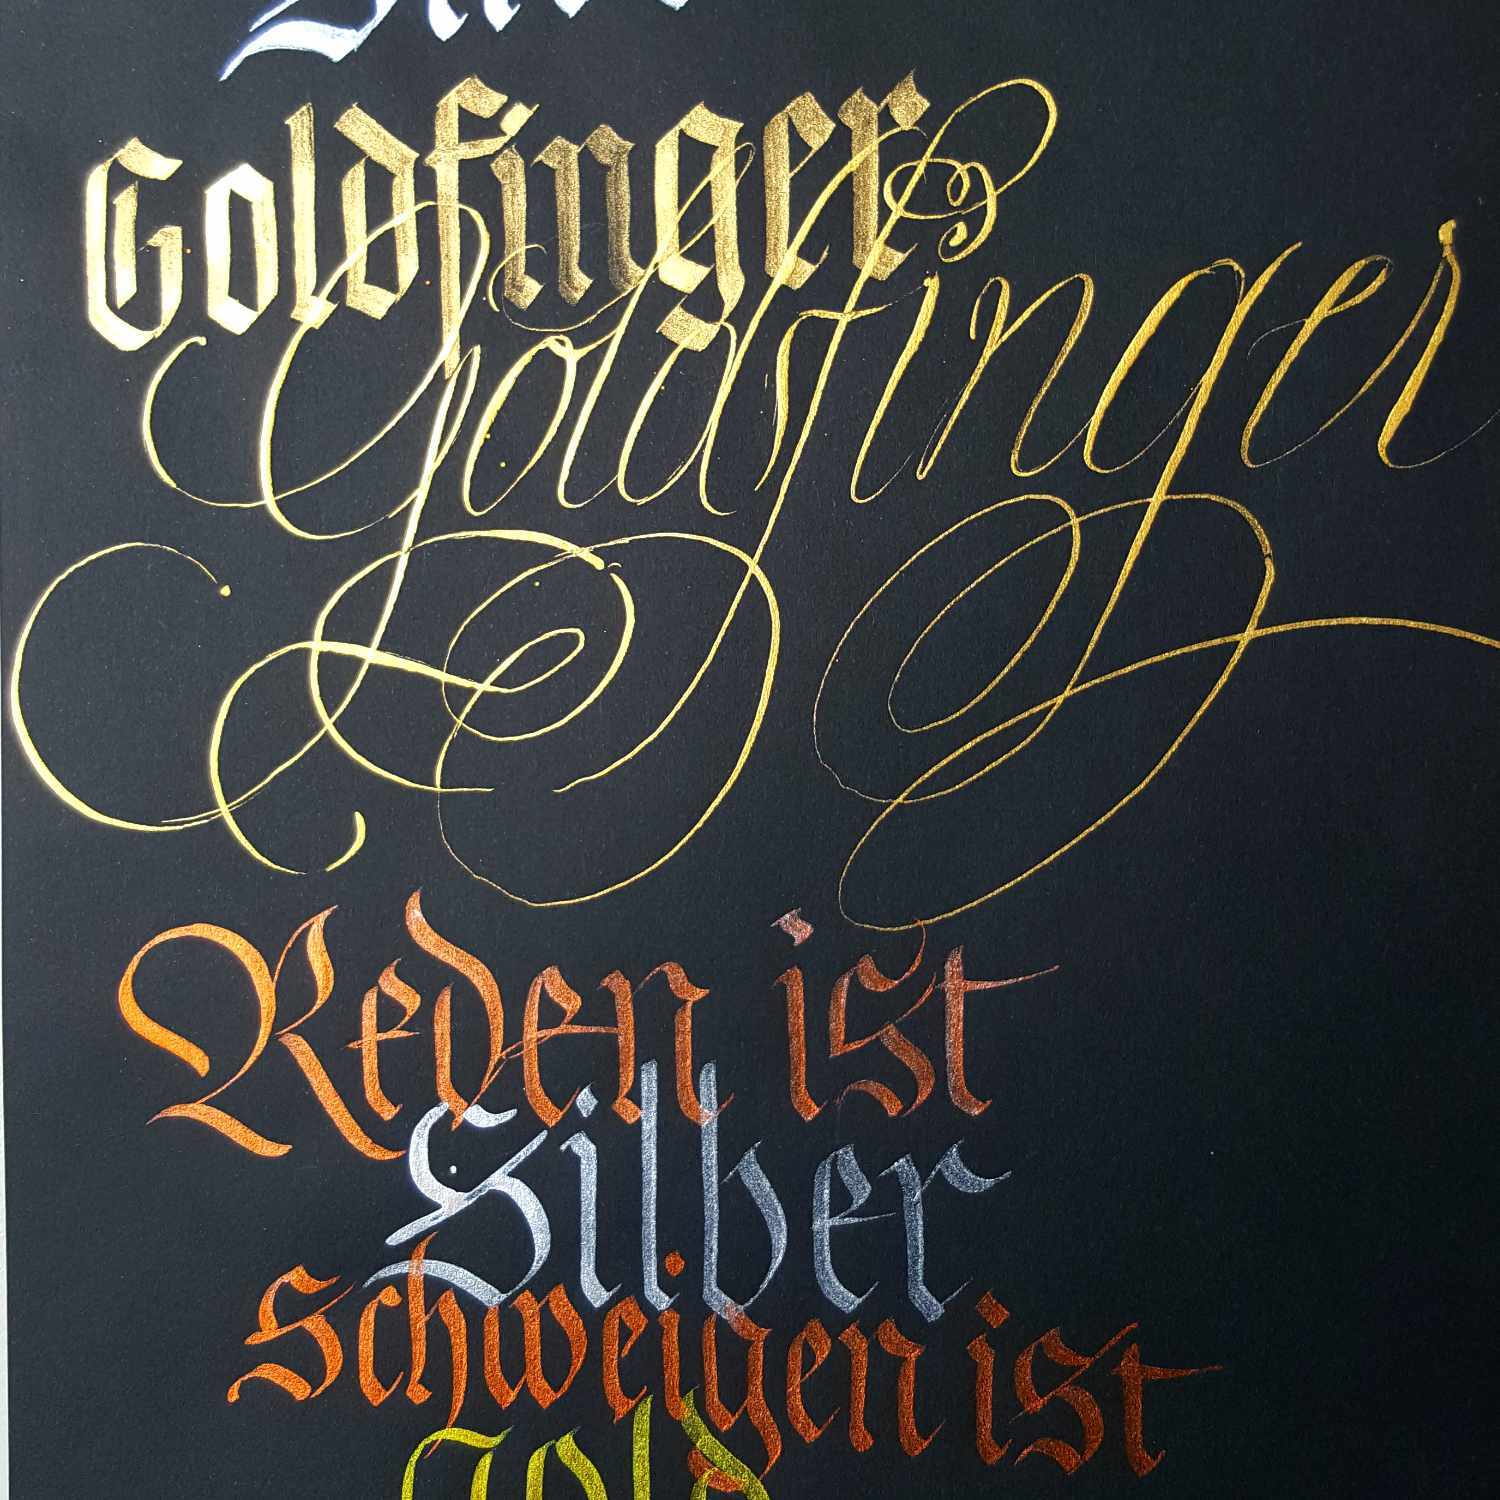 Goldfinger
Goldfinger
Reden ist
Silber
Schweigen ist
Gold